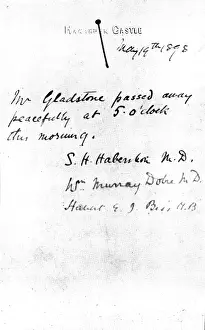 Hawarden Castle
May 19th 1898
Mr Gladstone passed away
peacefully at 5.o'clock
this morning.
S. H. Habershon M.D.
Wm Murray Dobie M.D.
Hubert E. J. Biss M.B.